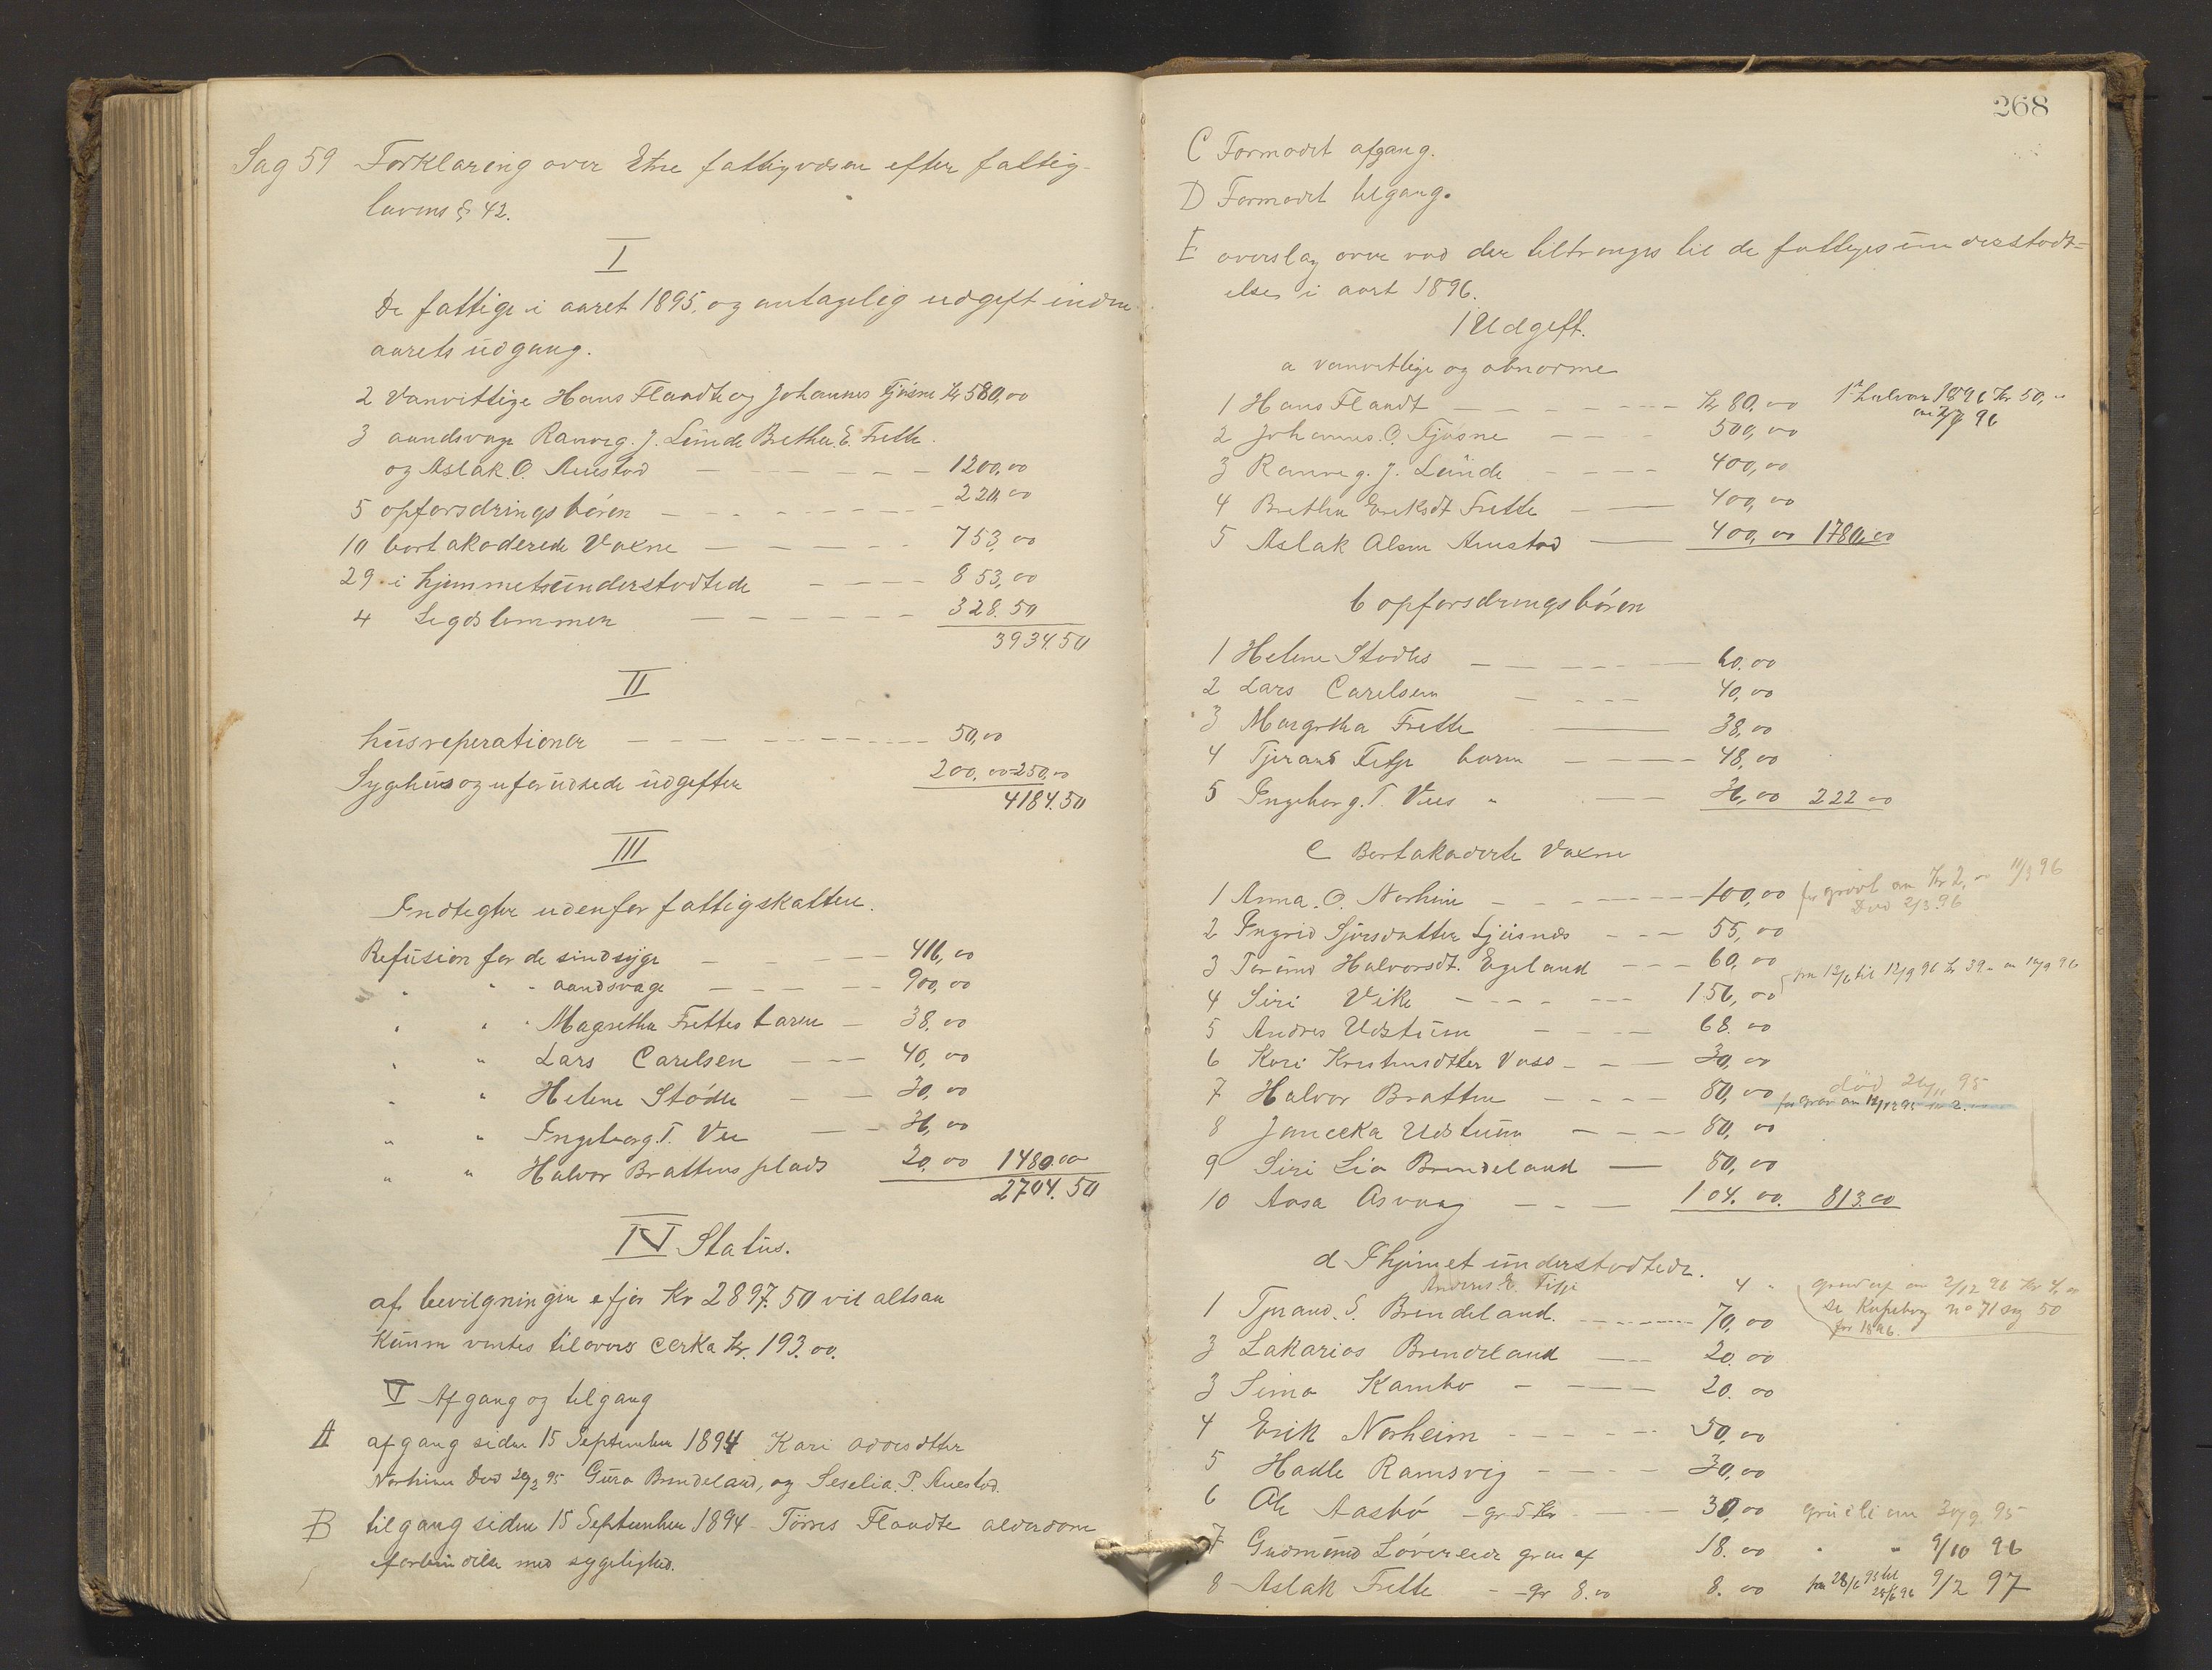 Sag 59 Forklaring over Etne fattigvæsen efter fattig-
lovens § 42.
I
De fattige i aaret 1895, og antagelig udgift inden
aarets udgang.
2 Vanvittige Hans Flaadt og Johannes Tjösne Kr 580,00
3 aandsvage Ranveg. J. Lunde Bretha. E. Frette.
og Aslak. O. Austad 1200,00
5 opforsdrings börn 220,00
10 bortakoderede Voxne 753,00
29 i hjemmetsunderstodtede 853,00
4 Legdslemmer 328.50
3934.50
II
husreperationer 50,00
Sygehus og uforudsede udgifter 200,00=250,00
4184.50
III
Indtegter udenfor fattigskatten.
Refusion for de sindsyge 416,00
" " " aandsvage 900,00
" " Magretha Frettes barn 38,00
" " Lars Carelsen 40,00
" " Helene Stödle 30,00
" " Ingeborg. T. Ve 36,00
" " Halvor Brattens plads 20,00 1480.00
2704.50
IV Status.
af bevilgningen efjor Kr 2897.50 vil altsaa
Kunn ventes tilovers cerka Kr. 193.00.
V Afgang og tilgang
A afgang siden 15 September 1894 Kari
Norheim Død Guro Brendeland, og Seselia. P. Austad.
B tilgang siden 15 September 1894 - Törres Flaadte alderdom
eforbindelse med sygelighed.
268
C Formodet afgang.
D Formodet tilgang.
E overslag over vad der tiltrenges til de fattiges understodt=
elser i aaret 1896.
1 Udgift.
a vanvittige og abnorme
1 Hans Flaadt Kr 80,00 1ste halvaar 1896 Kr 50,
2 Johannes. O. Tjösne 500,00
3 Ranveg. J. Lunde 400,00
4 Bretha Eriksdt Frette 400,00
5 Aslak Olsen Austad 400,00 1780,00
b opforsdringsbörn
1 Helene Stødles 60.00
2 Lars Carelsen 40,00
3 Margretha Frette 38,00
4 Tjerand Fitje barn 48,00
5 Ingeborg. T. Vees " 36,00 222 00
C Bortakoderte Voxne
1 Anna. O. Norheim 100,00 for gravöl an Kr 2,00 11/3 96
Død 2/3.96
2 Ingrid Sjursdatter 55,00
3 Torund Halvorsdt. Egeland 60,00
4 Siri Vike 156,00 fra 12/6 til 12/9 96 Kr 39
5 Andres Udstuen 68.00
6 Kari 30,00
7 Halvor Bratten 80,00 död 95
8 Udstuen 80,00
9 Siri Lia Brendeland 80,00
10 Aasa Osvaag 104.00. 813.00
d I hjemet understodtede.
Anders. E. Fitje 4 " 2/12 96 Kr 4,00
1 Tjerand. S. Brendeland. 70,00 Se Kopiebog no 71 sag 50
for 1896.
3 Sakarias Brendeland 20.00
3 Simo Kambo 20.00
4 Erik Norheim 50,00
5 Hadle Ramsvig 30,00
6 Ole Aasbö - gr. 5 Kr 30,00 95
7 Gudmund 18.00 " " 9/10 96
8 Aslak Frette - gr 8.00 8.00 fra 28/6 95 til
28/6 96 9/2 97